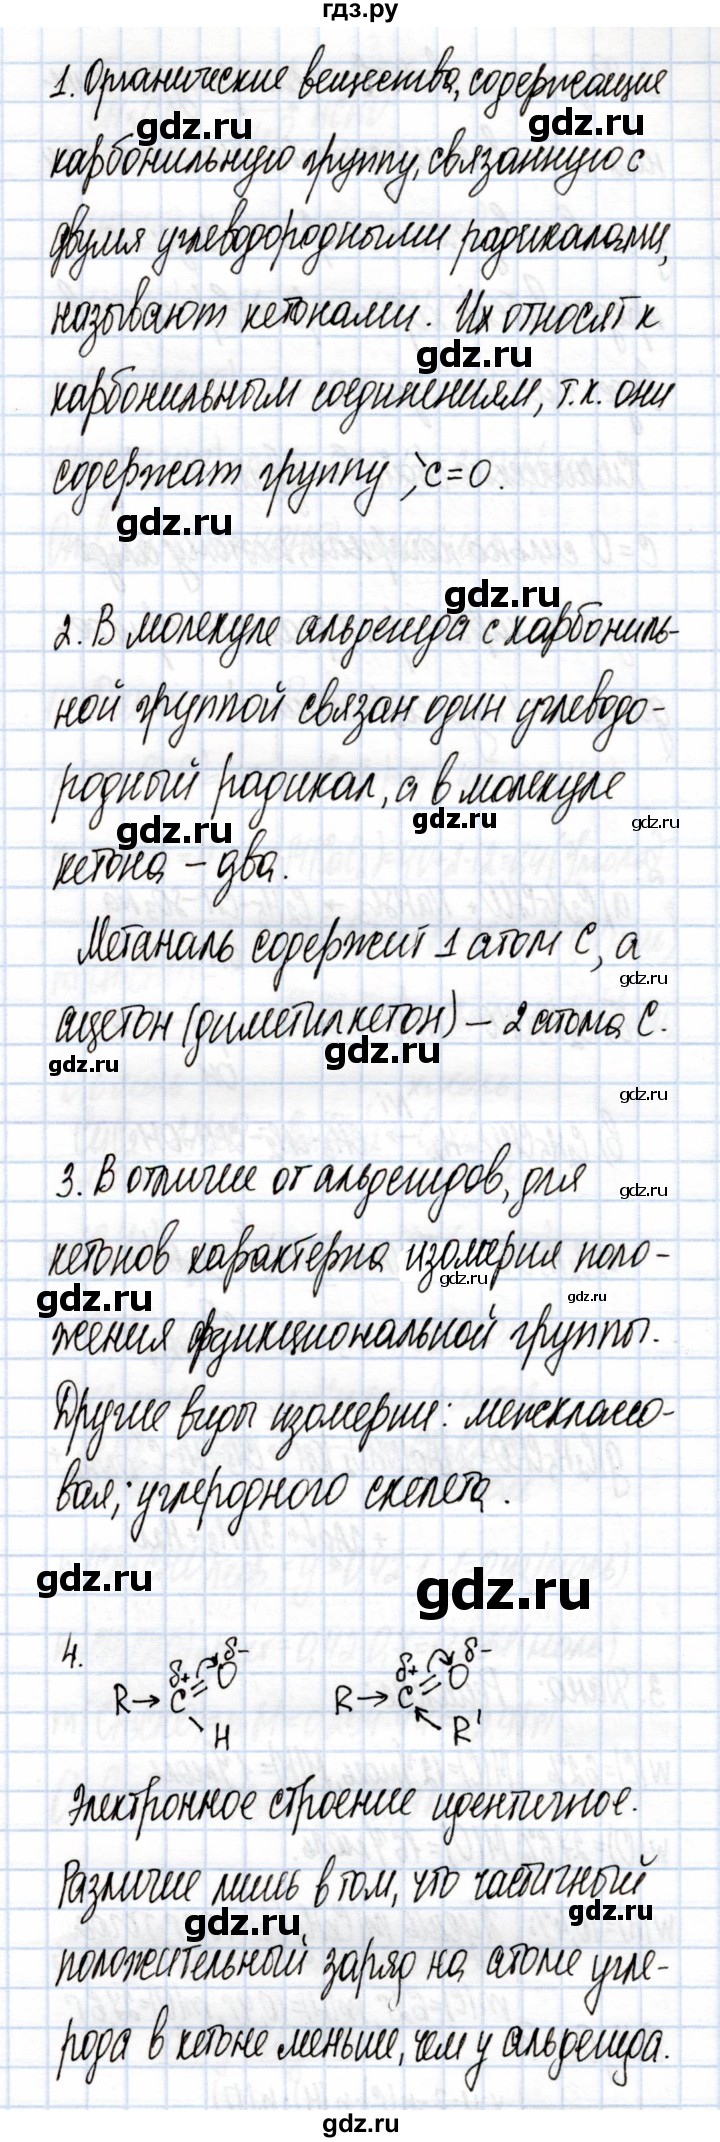 гдз.ру
1. Органические вещества, содержащие
gdz.ru
gdz.ru
карбонильную группу, связанную с
двумя углеводородными радикалами,
называют кетонами. Их относят к
gdz.ru
карбонильным соединениям, т.к. они
содержат группу C=O.
gdz.ru
gdz.ru
2. В молекуле альдегида с карбониль-
ной группой связан один углеводо-
родный радикал, а в молекуле
gdz.ru
gdz.ru
gdz.ru
кетона – два.
Метаналь содержит 1 атом C, а
gdz.ru
ацетон (диметилкетон) – 2 атома C.
gdz.ru
gdz.ru
gdz.ru
3. В отличие от альдегидов, для
gdz.ru
кетонов характерна изомерия поло-
gdz.ru
gdz.ru
gdz.ru
жения функциональной группы.
Другие виды изомерии: межклассо-
вая, углеродного скелета.
gdz.ru
gdz.ru
4.
δ+ δ- δ+ δ-
R→C=O R→C=O
H R'
Электронное строение идентичное.
Различие лишь в том, что частичный
gdz.ru
gdz.ru
положительный заряд на атоме угле-
рода в кетоне меньше, чем у альдегида.
gdz.ru